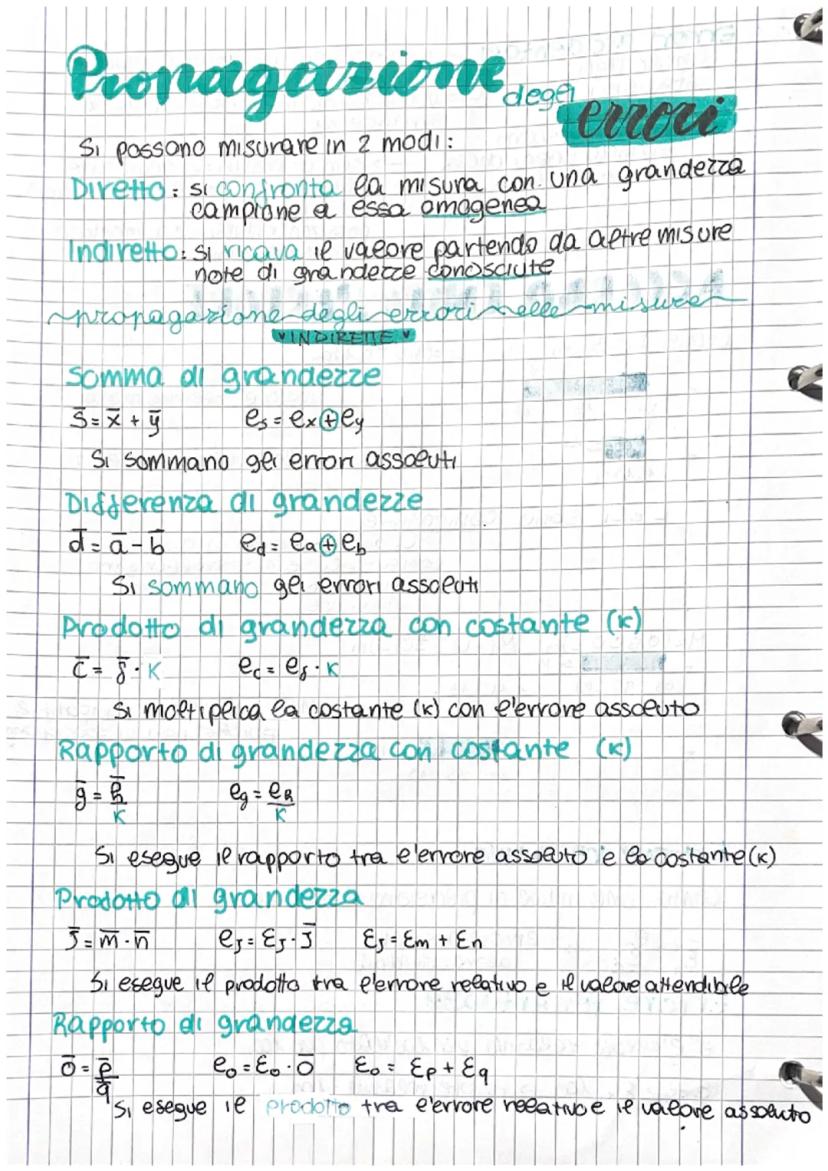 Propagazione degli errori
Si possono misurare in 2 modi:
Diretto: si confronta la misura con una grandezza
campione a essa omogenea
Indiretto: si ricava il valore partendo da altre misure
note di grandezze conosciute
propagazione degli errori nelle misure
INDIRETTE
Somma di grandezze
s̄ = x̄ + ȳ eₛ = eₓ + e_y
Si sommano gli errori assoluti
Differenza di grandezze
d̄ = ā - b̄ e_d = e_a + e_b
Si sommano gli errori assoluti
Prodotto di grandezza con costante (K)
c̄ = f̄ · K e_c = e_f · K
Si moltiplica la costante (K) con l'errore assoluto
Rapporto di grandezza con costante (K)
ḡ = h̄/K e_g = e_h/K
Si esegue il rapporto tra l'errore assoluto e la costante (K)
Prodotto di grandezza
J̄ = m̄ · n̄ e_J = ε_J · J̄ ε_J = ε_m + ε_n
Si esegue il prodotto tra l'errore relativo e il valore attendibile
Rapporto di grandezza
ō = p̄/q e_o = ε_o · ō ε_o = ε_p + ε_q
Si esegue il prodotto tra l'errore relativo e il valore assoluto